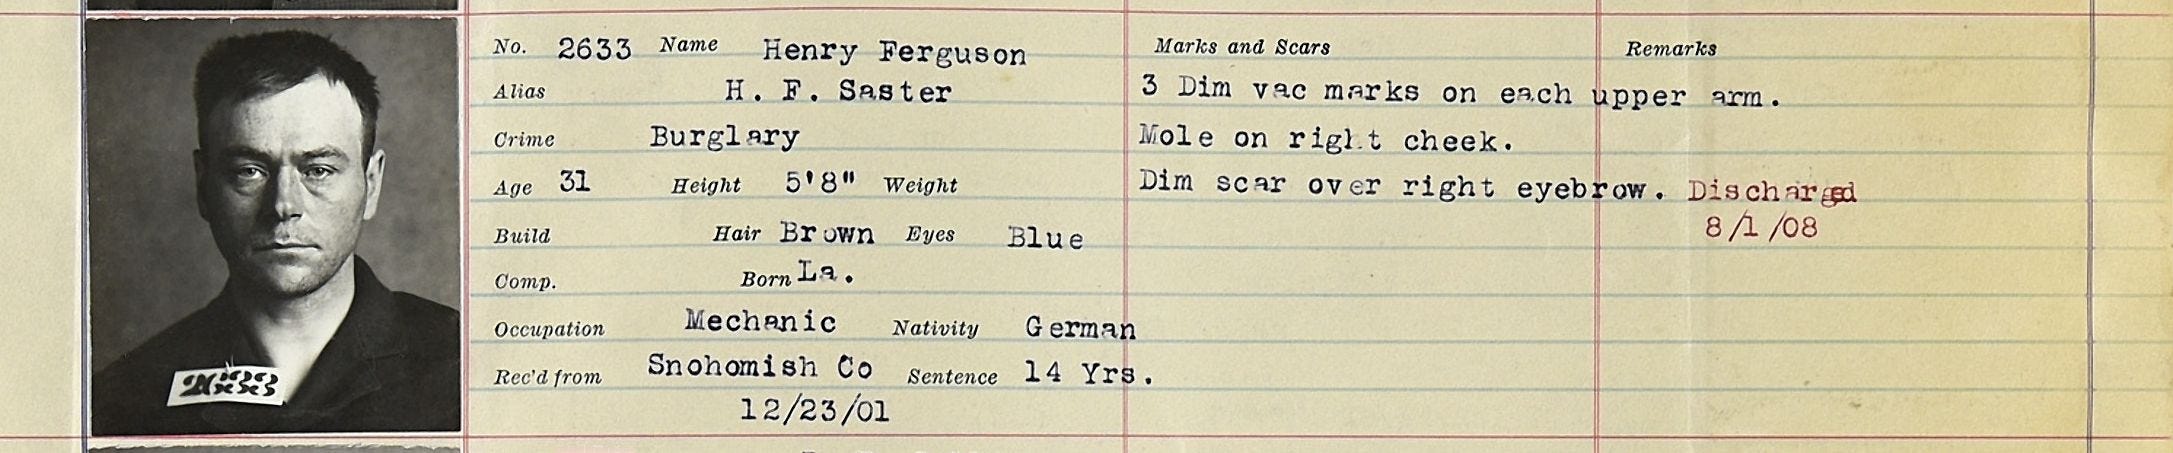 No. 2633 Name Henry Ferguson Marks and Scars Remarks
Alias H. F. Saster 3 Dim vac marks on each upper arm.
Crime Burglary Mole on right cheek.
Age 31 Height 5'8" Weight Dim scar over right eyebrow. Discharged
8/1/08
Build Hair Brown Eyes Blue
Comp. Born La.
Occupation Mechanic Nativity German
Rec'd from Snohomish Co Sentence 14 Yrs.
12/23/01
2633